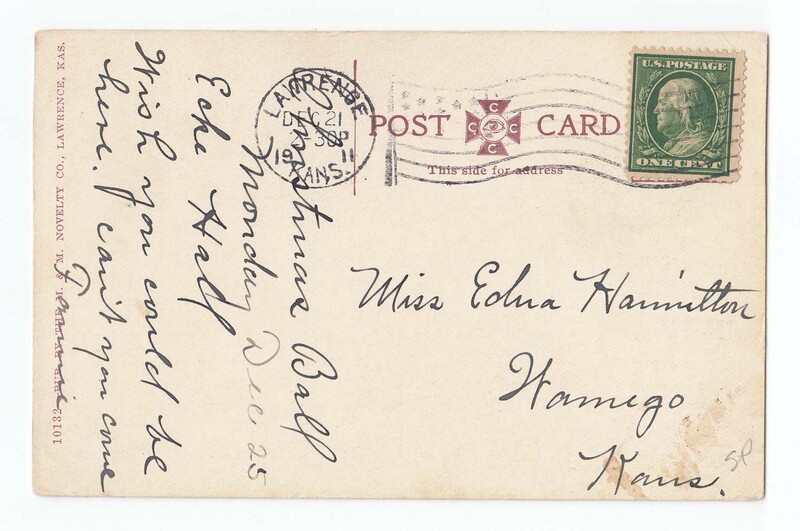 Christmas Ball
Monday Dec 25
Ecke Hall
Wish you could be
here. Can't you come
10132 NOVELTY CO., LAWRENCE, KAS.
LAWRENCE
DEC 21
30P
19 11
KANS.
POST CARD
C C C C
This side for address
U.S. POSTAGE
ONE CENT
Miss Edna Hamilton
Wamego
Kans.
SP